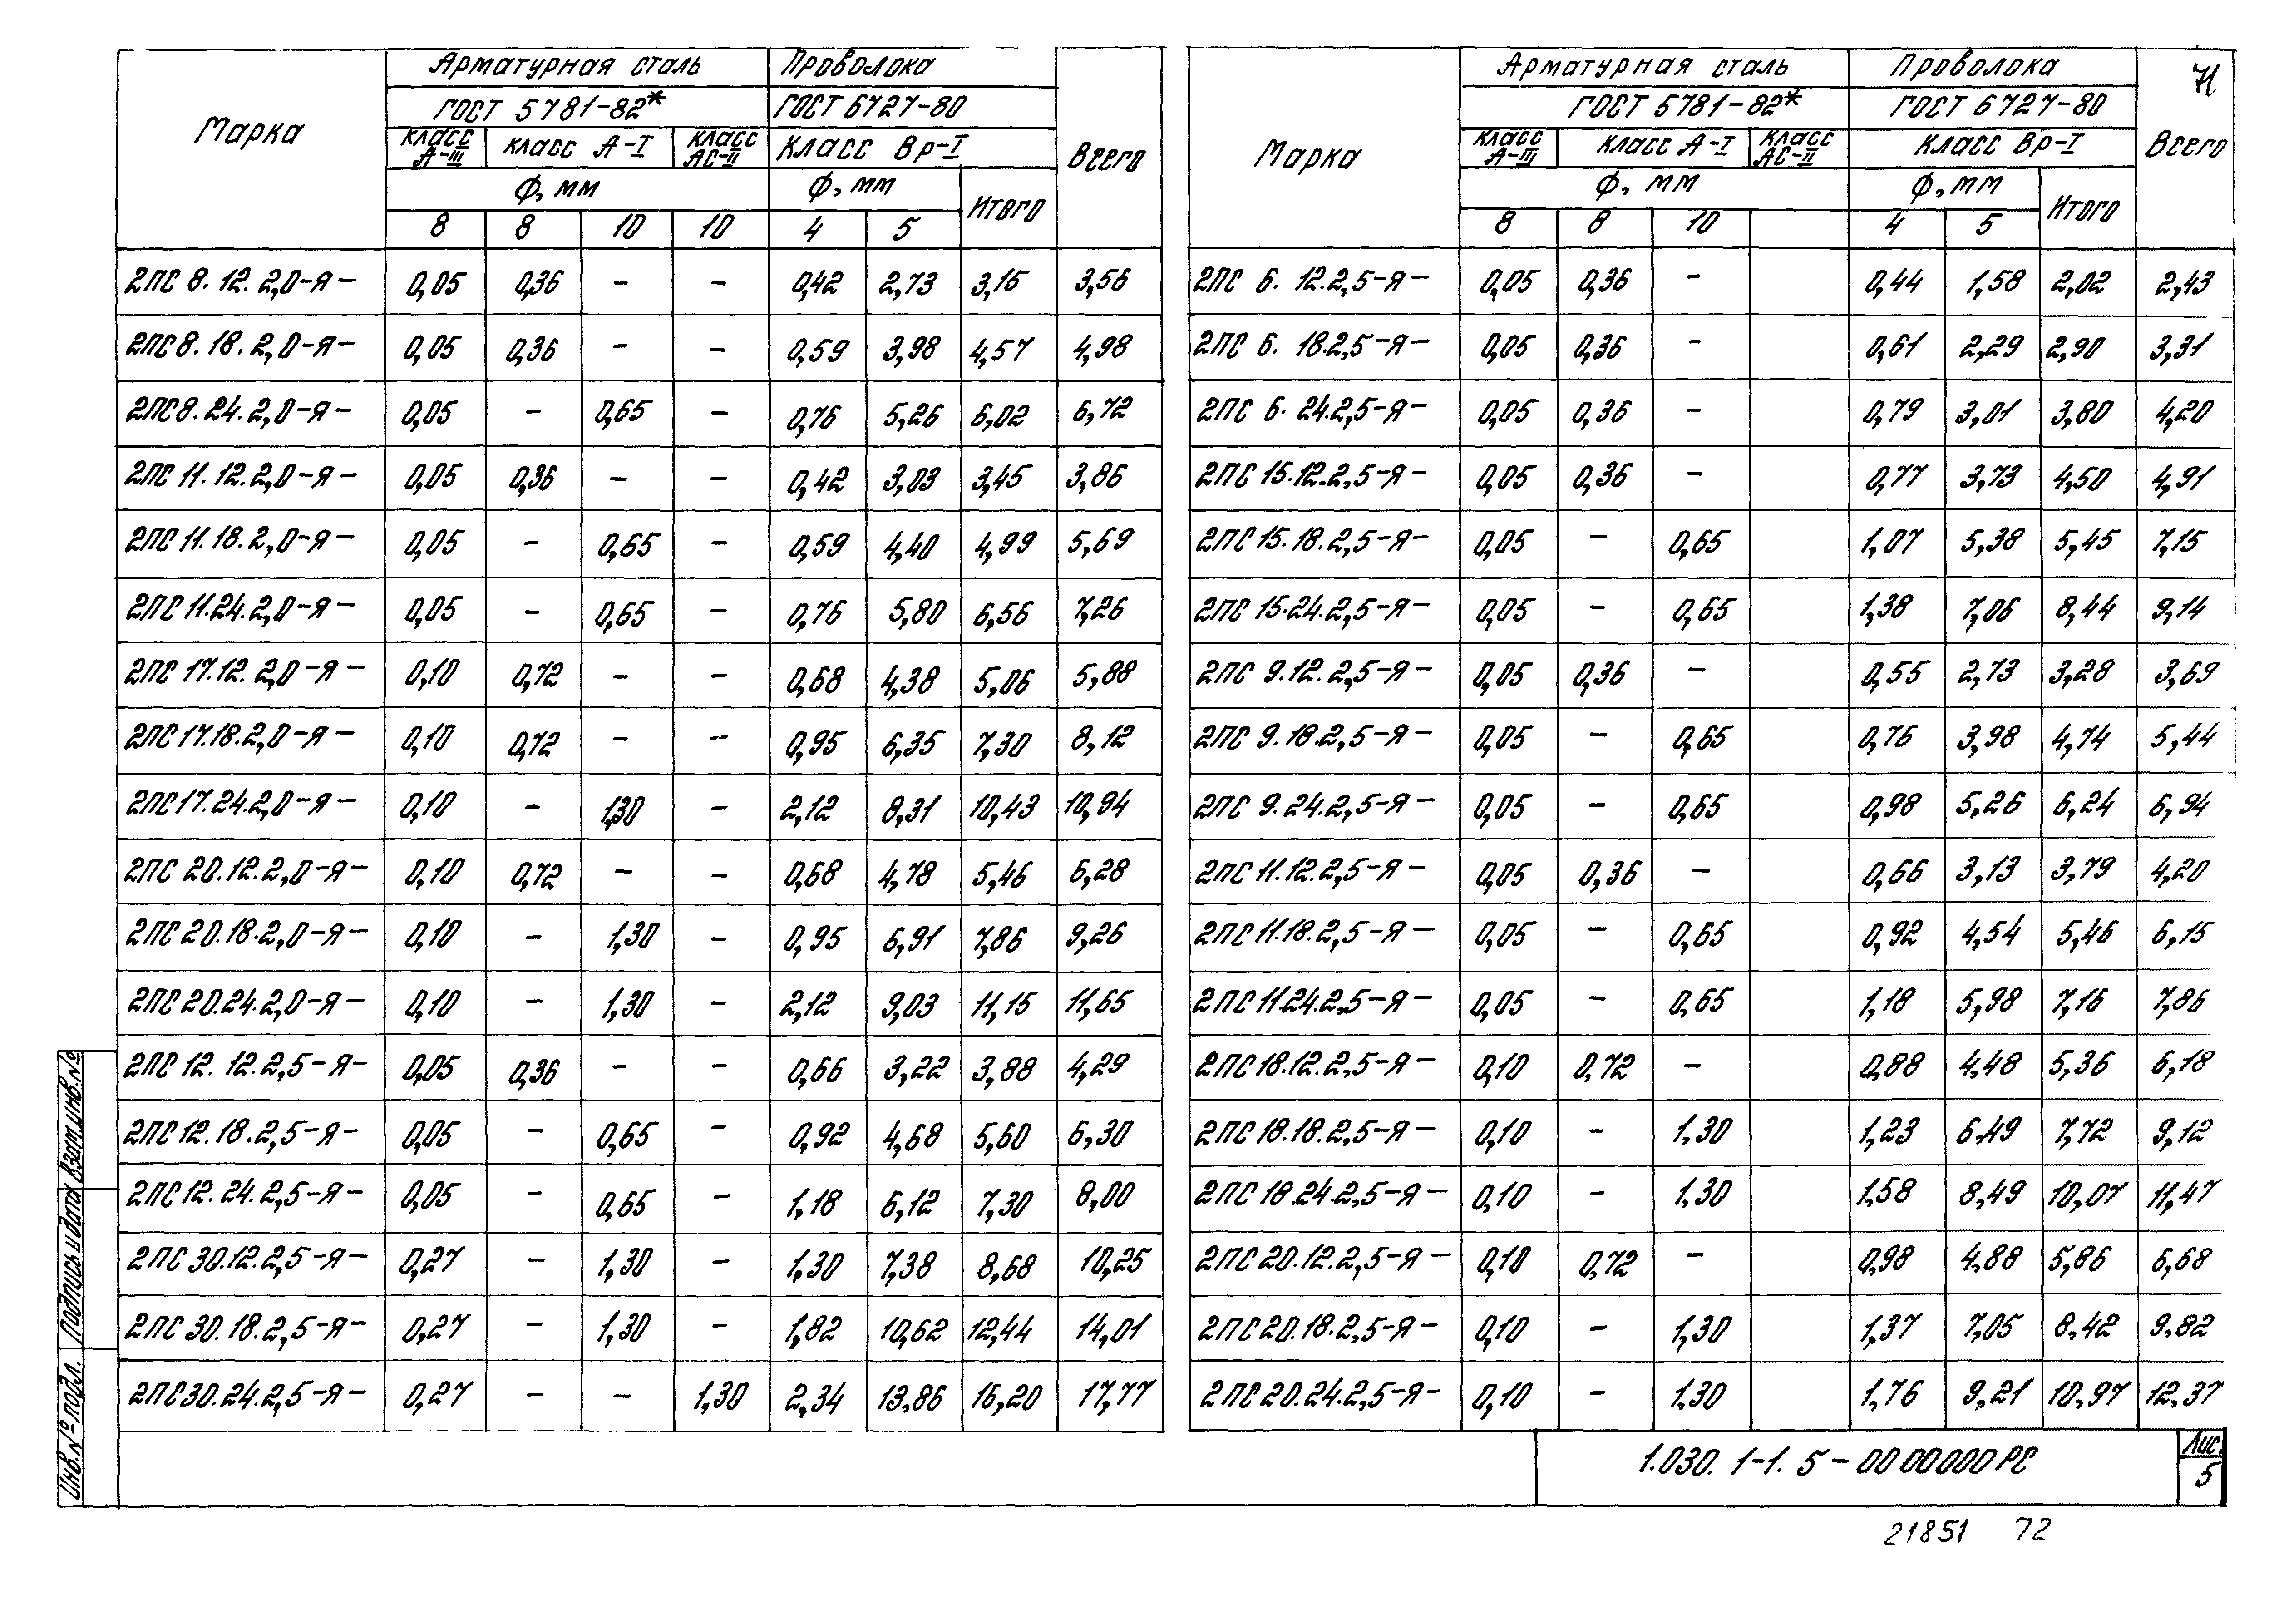 71
Марка Арматурная сталь Проволока Всего
ГОСТ 5781-82* ГОСТ 6727-80
класс А-III класс А-I класс АС-II Класс Вр-I
Ф, мм Ф, мм Итого
8 8 10 10 4 5
2ПС 8.12.2,0-Я- 0,05 0,36 - - 0,42 2,73 3,15 3,56
2ПС 8.18.2,0-Я- 0,05 0,36 - - 0,59 3,98 4,57 4,98
2ПС 8.24.2,0-Я- 0,05 - 0,65 - 0,76 5,26 6,02 6,72
2ПС 11.12.2,0-Я- 0,05 0,36 - - 0,42 3,03 3,45 3,86
2ПС 11.18.2,0-Я- 0,05 - 0,65 - 0,59 4,40 4,99 5,69
2ПС 11.24.2,0-Я- 0,05 - 0,65 - 0,76 5,80 6,56 7,26
2ПС 17.12.2,0-Я- 0,10 0,72 - - 0,68 4,38 5,06 5,88
2ПС 17.18.2,0-Я- 0,10 0,72 - - 0,95 6,35 7,30 8,12
2ПС 17.24.2,0-Я- 0,10 - 1,30 - 2,12 8,31 10,43 10,94
2ПС 20.12.2,0-Я- 0,10 0,72 - - 0,68 4,78 5,46 6,28
2ПС 20.18.2,0-Я- 0,10 - 1,30 - 0,95 6,91 7,86 9,26
2ПС 20.24.2,0-Я- 0,10 - 1,30 - 2,12 9,03 11,15 11,65
2ПС 12.12.2,5-Я- 0,05 0,36 - - 0,66 3,22 3,88 4,29
2ПС 12.18.2,5-Я- 0,05 - 0,65 - 0,92 4,68 5,60 6,30
2ПС 12.24.2,5-Я- 0,05 - 0,65 - 1,18 6,12 7,30 8,00
2ПС 30.12.2,5-Я- 0,27 - 1,30 - 1,30 7,38 8,68 10,25
2ПС 30.18.2,5-Я- 0,27 - 1,30 - 1,82 10,62 12,44 14,01
2ПС 30.24.2,5-Я- 0,27 - - 1,30 2,34 13,86 16,20 17,77
Марка Арматурная сталь Проволока Всего
ГОСТ 5781-82* ГОСТ 6727-80
класс А-III класс А-I класс АС-II Класс Вр-I
Ф, мм Ф, мм Итого
8 8 10 4 5
2ПС 6.12.2,5-Я- 0,05 0,36 - 0,44 1,58 2,02 2,43
2ПС 6.18.2,5-Я- 0,05 0,36 - 0,61 2,29 2,90 3,31
2ПС 6.24.2,5-Я- 0,05 0,36 - 0,79 3,01 3,80 4,20
2ПС 15.12.2,5-Я- 0,05 0,36 - 0,77 3,73 4,50 4,91
2ПС 15.18.2,5-Я- 0,05 - 0,65 1,07 5,38 5,45 7,15
2ПС 15.24.2,5-Я- 0,05 - 0,65 1,38 7,06 8,44 9,14
2ПС 9.12.2,5-Я- 0,05 0,36 - 0,55 2,73 3,28 3,69
2ПС 9.18.2,5-Я- 0,05 - 0,65 0,76 3,98 4,74 5,44
2ПС 9.24.2,5-Я- 0,05 - 0,65 0,98 5,26 6,24 6,94
2ПС 11.12.2,5-Я- 0,05 0,36 - 0,66 3,13 3,79 4,20
2ПС 11.18.2,5-Я- 0,05 - 0,65 0,92 4,54 5,46 6,15
2ПС 11.24.2,5-Я- 0,05 - 0,65 1,18 5,98 7,16 7,86
2ПС 18.12.2,5-Я- 0,10 0,72 - 0,88 4,48 5,36 6,18
2ПС 18.18.2,5-Я- 0,10 - 1,30 1,23 6,49 7,72 9,12
2ПС 18.24.2,5-Я- 0,10 - 1,30 1,58 8,49 10,07 11,47
2ПС 20.12.2,5-Я- 0,10 0,72 - 0,98 4,88 5,86 6,68
2ПС 20.18.2,5-Я- 0,10 - 1,30 1,37 7,05 8,42 9,82
2ПС 20.24.2,5-Я- 0,10 - 1,30 1,76 9,21 10,97 12,37
Инв.№ подл. Подпись и дата Взам.инв.№
1.030.1-1.5-0000000РС
Лис.
5
21851 72